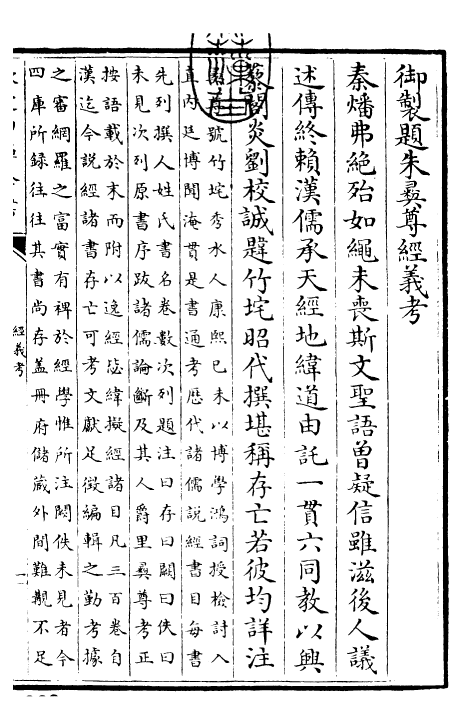 御製題朱彝尊經義考
秦燔弗絶殆如繩未喪斯文聖語曽疑信雖滋後人議
述傳終賴漢儒承天經地緯道由託一貫六同教以興
藜閣炎劉校誠韙竹垞昭代撰堪稱存亡若彼均詳注
彝尊號竹垞秀水人康熙己未以博學鴻詞授檢討入
直内廷博聞淹貫是書通考歴代諸儒説經書目每書
先列撰人姓氏書名卷數次列題注曰存曰闕曰佚曰
未見次列原書序跋諸儒論斷及其人爵里彝尊考正
按語載於末而附以逸經毖緯擬經諸目凡三百卷自
漢迄今説經諸書存亡可考文獻足徴編輯之勤考據
之審網羅之富實有裨於經學惟所注闕佚未見者今
四庫所録往往其書尚存蓋冊府儲藏外間難覯不足
經義考
一